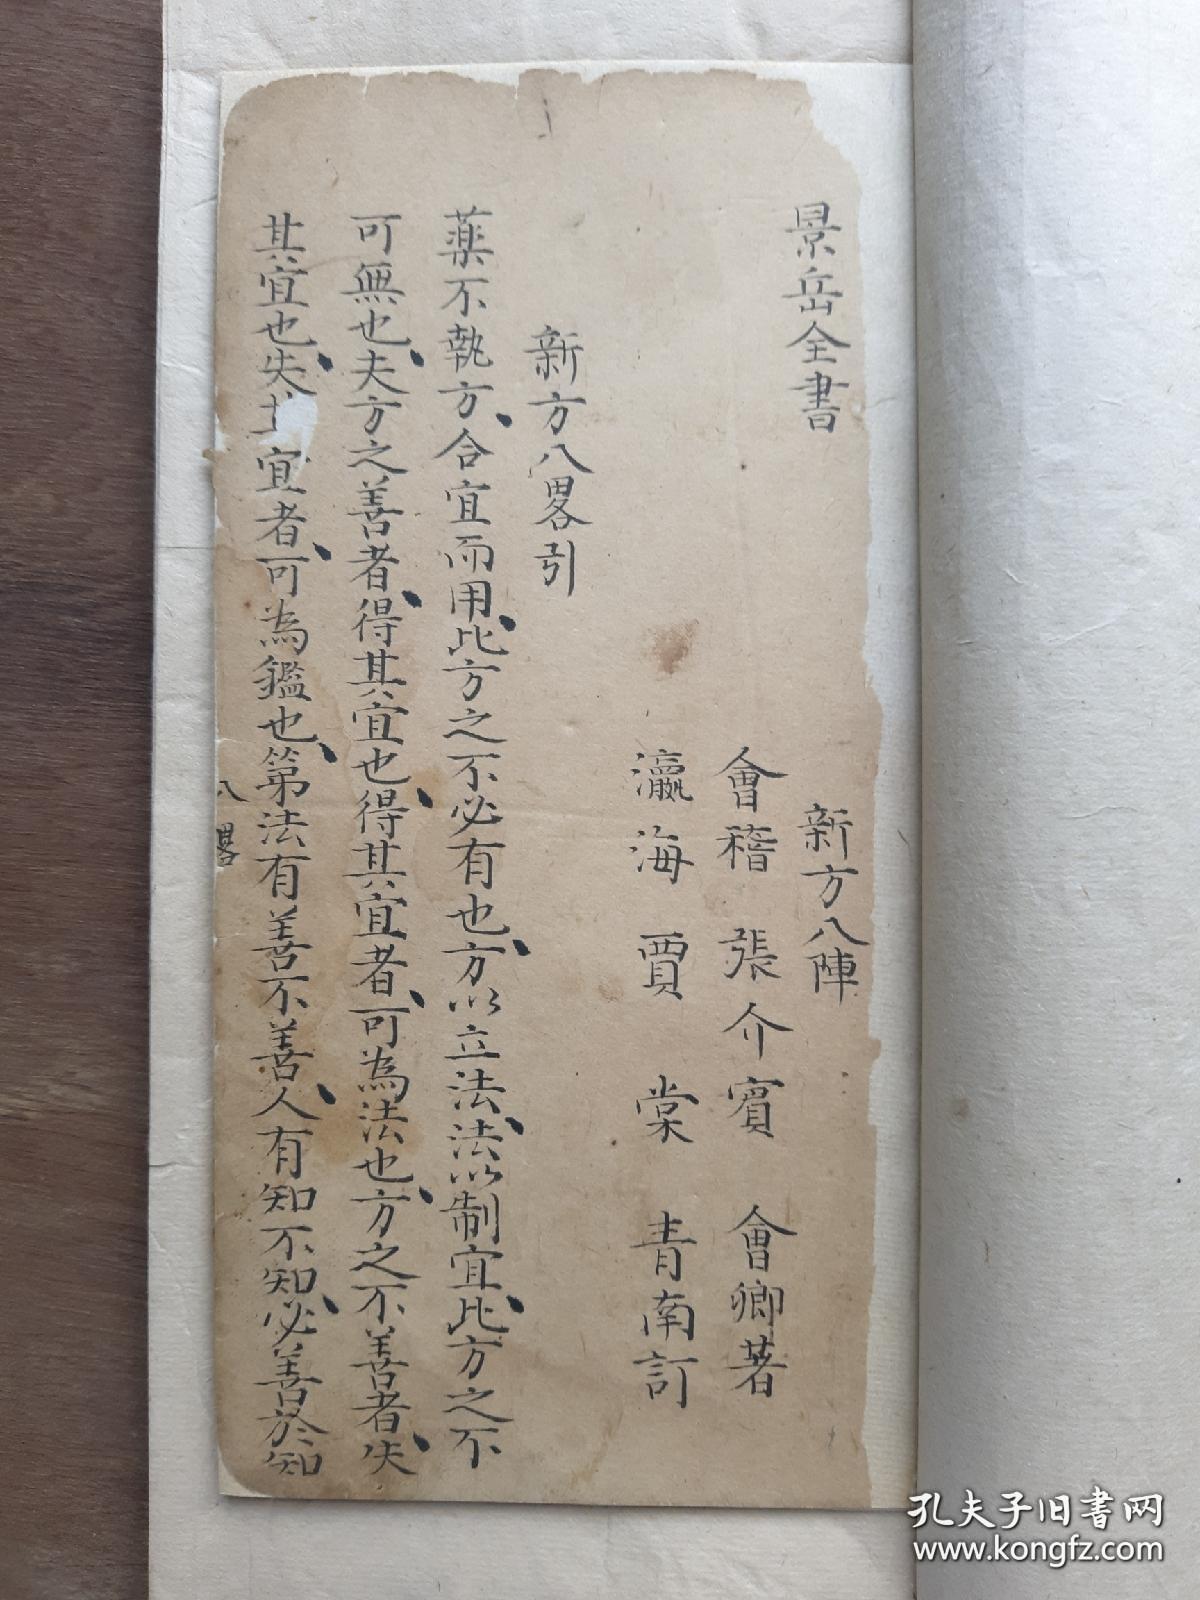 景岳全書
新方八陣
會稽 張介賓 會卿著
瀛海 賈棠 青南訂
新方八畧引
藥不執方、合宜而用、此方之不必有也、方以立法、法以制宜、此方之不
可無也、夫方之善者、得其宜也、得其宜者、可為法也、方之不善者、失
其宜也、失其宜者、可為鑑也、第法有善不善、人有知不知、必善於知
八畧
孔夫子旧书网
www.kongfz.com